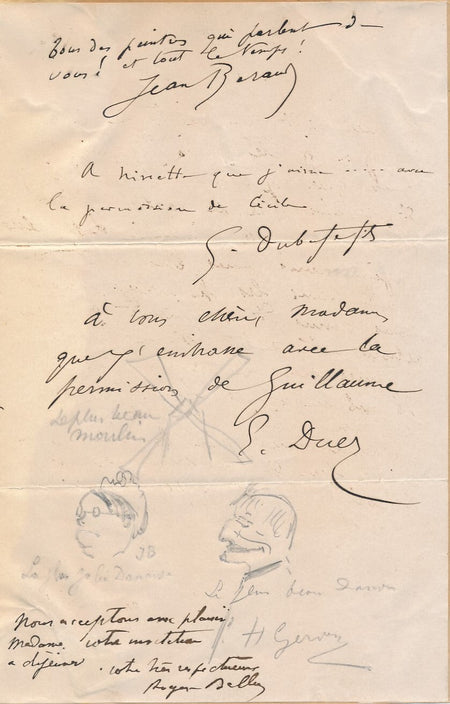 Tous des peintres qui parlent de
vous! et tout le temps!
Jean Béraud
A Ninette que j'aime ..... avec
la permission de Cécile
G. Dubufe fils
à vous chère, madame
que j'embrasse avec la
permission de Guillaume
E. Duez
Le plus beau
moulin
JB
La plus jolie Danoise
Le plus beau Danois
H Gervex
Nous acceptons avec plaisir
Madame votre invitation
a déjeuner. votre très respectueux
Roger Ballu